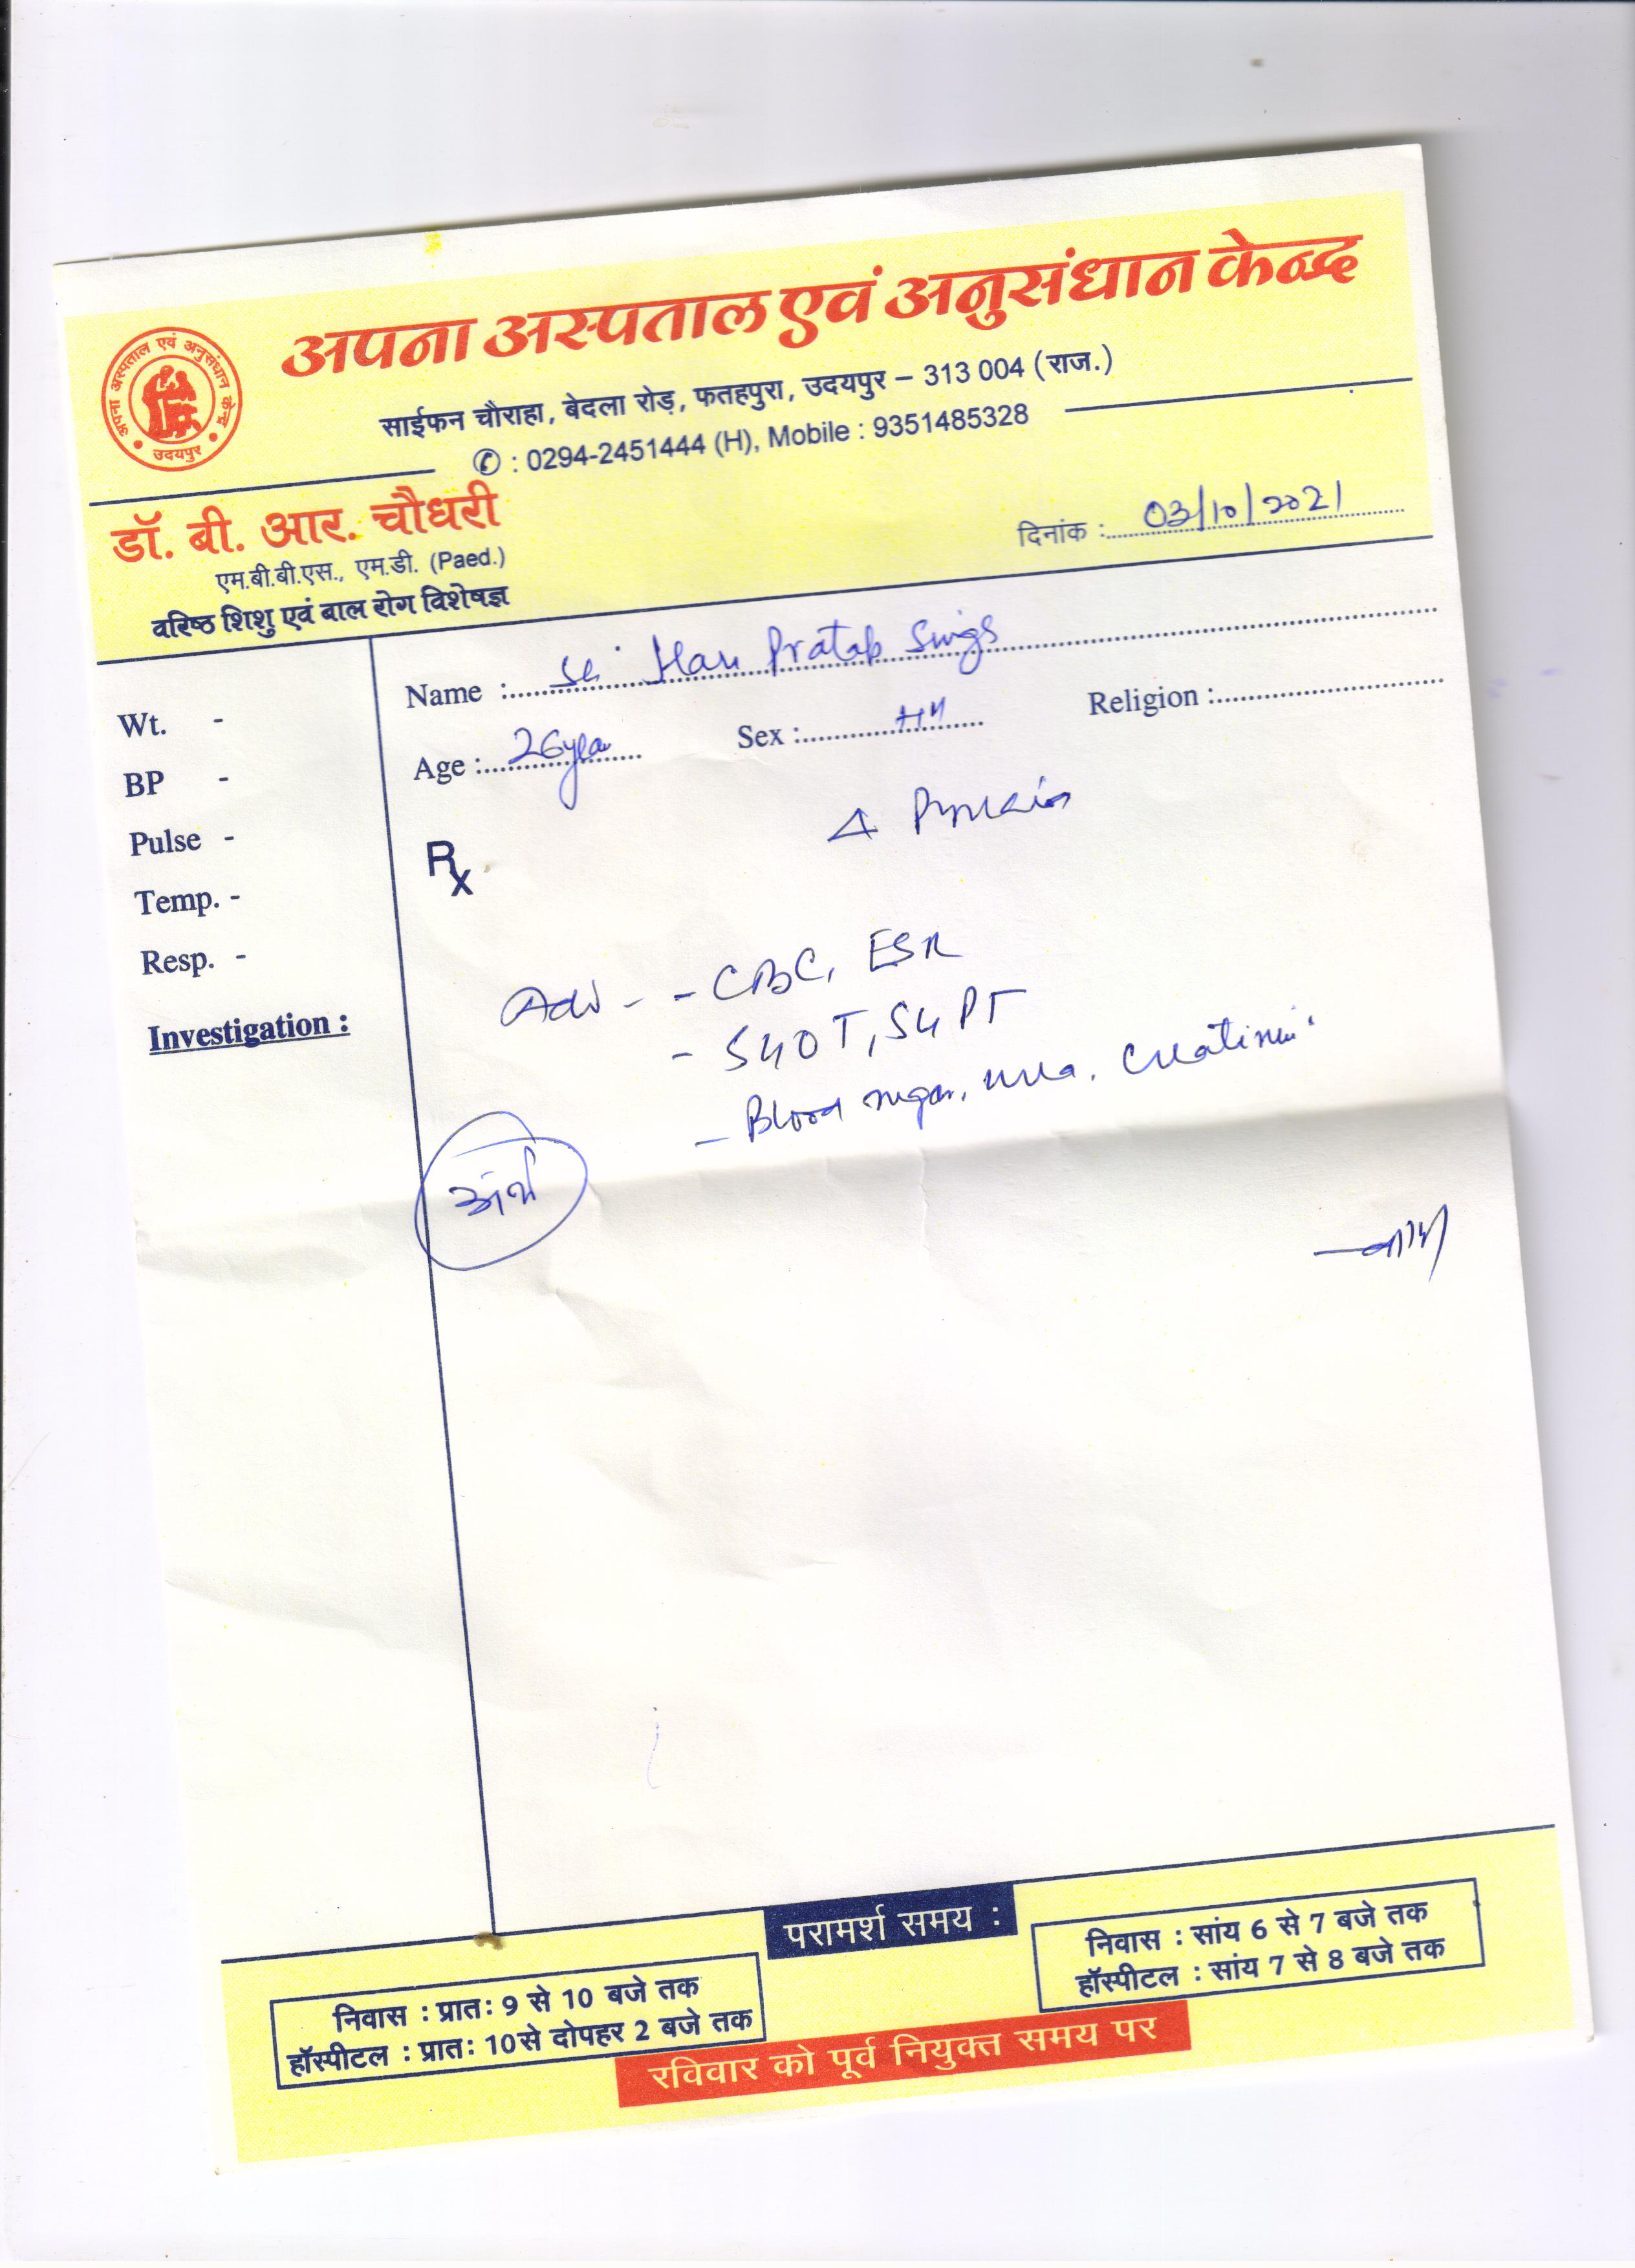 अपना अस्पताल एवं अनुसंधान केन्द्र
अपना अस्पताल एवं अनुसंधान केन्द्र
उदयपुर
साईफन चौराहा, बेदला रोड़, फतहपुरा, उदयपुर – 313 004 (राज.)
✆ : 0294-2451444 (H), Mobile : 9351485328
डॉ. बी. आर. चौधरी
एम.बी.बी.एस., एम.डी. (Paed.)
वरिष्ठ शिशु एवं बाल रोग विशेषज्ञ
दिनांक : 03/10/2021
Name : Pratap
Age : 26 year Sex : Religion :
Wt. -
BP -
Pulse -
Temp. -
Resp. -
Investigation :
Rx
Δ
Adv - - CBC, ESR
- SGOT, SGPT
- Blood sugar, urea, Creatinine
परामर्श समय :
निवास : प्रातः 9 से 10 बजे तक
हॉस्पीटल : प्रातः 10 से दोपहर 2 बजे तक
निवास : सांय 6 से 7 बजे तक
हॉस्पीटल : सांय 7 से 8 बजे तक
रविवार को पूर्व नियुक्त समय पर